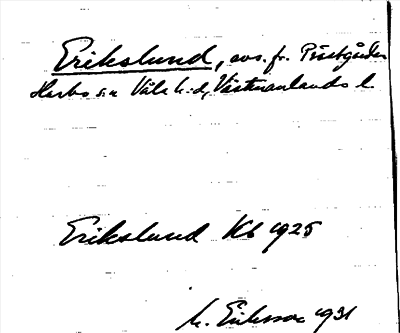 Erikslund, avs. fr. Prästgården
Harbo sn Våla h:d, Västmanlands l.
Erikslund Kb 1925
M. Eriksson 1931